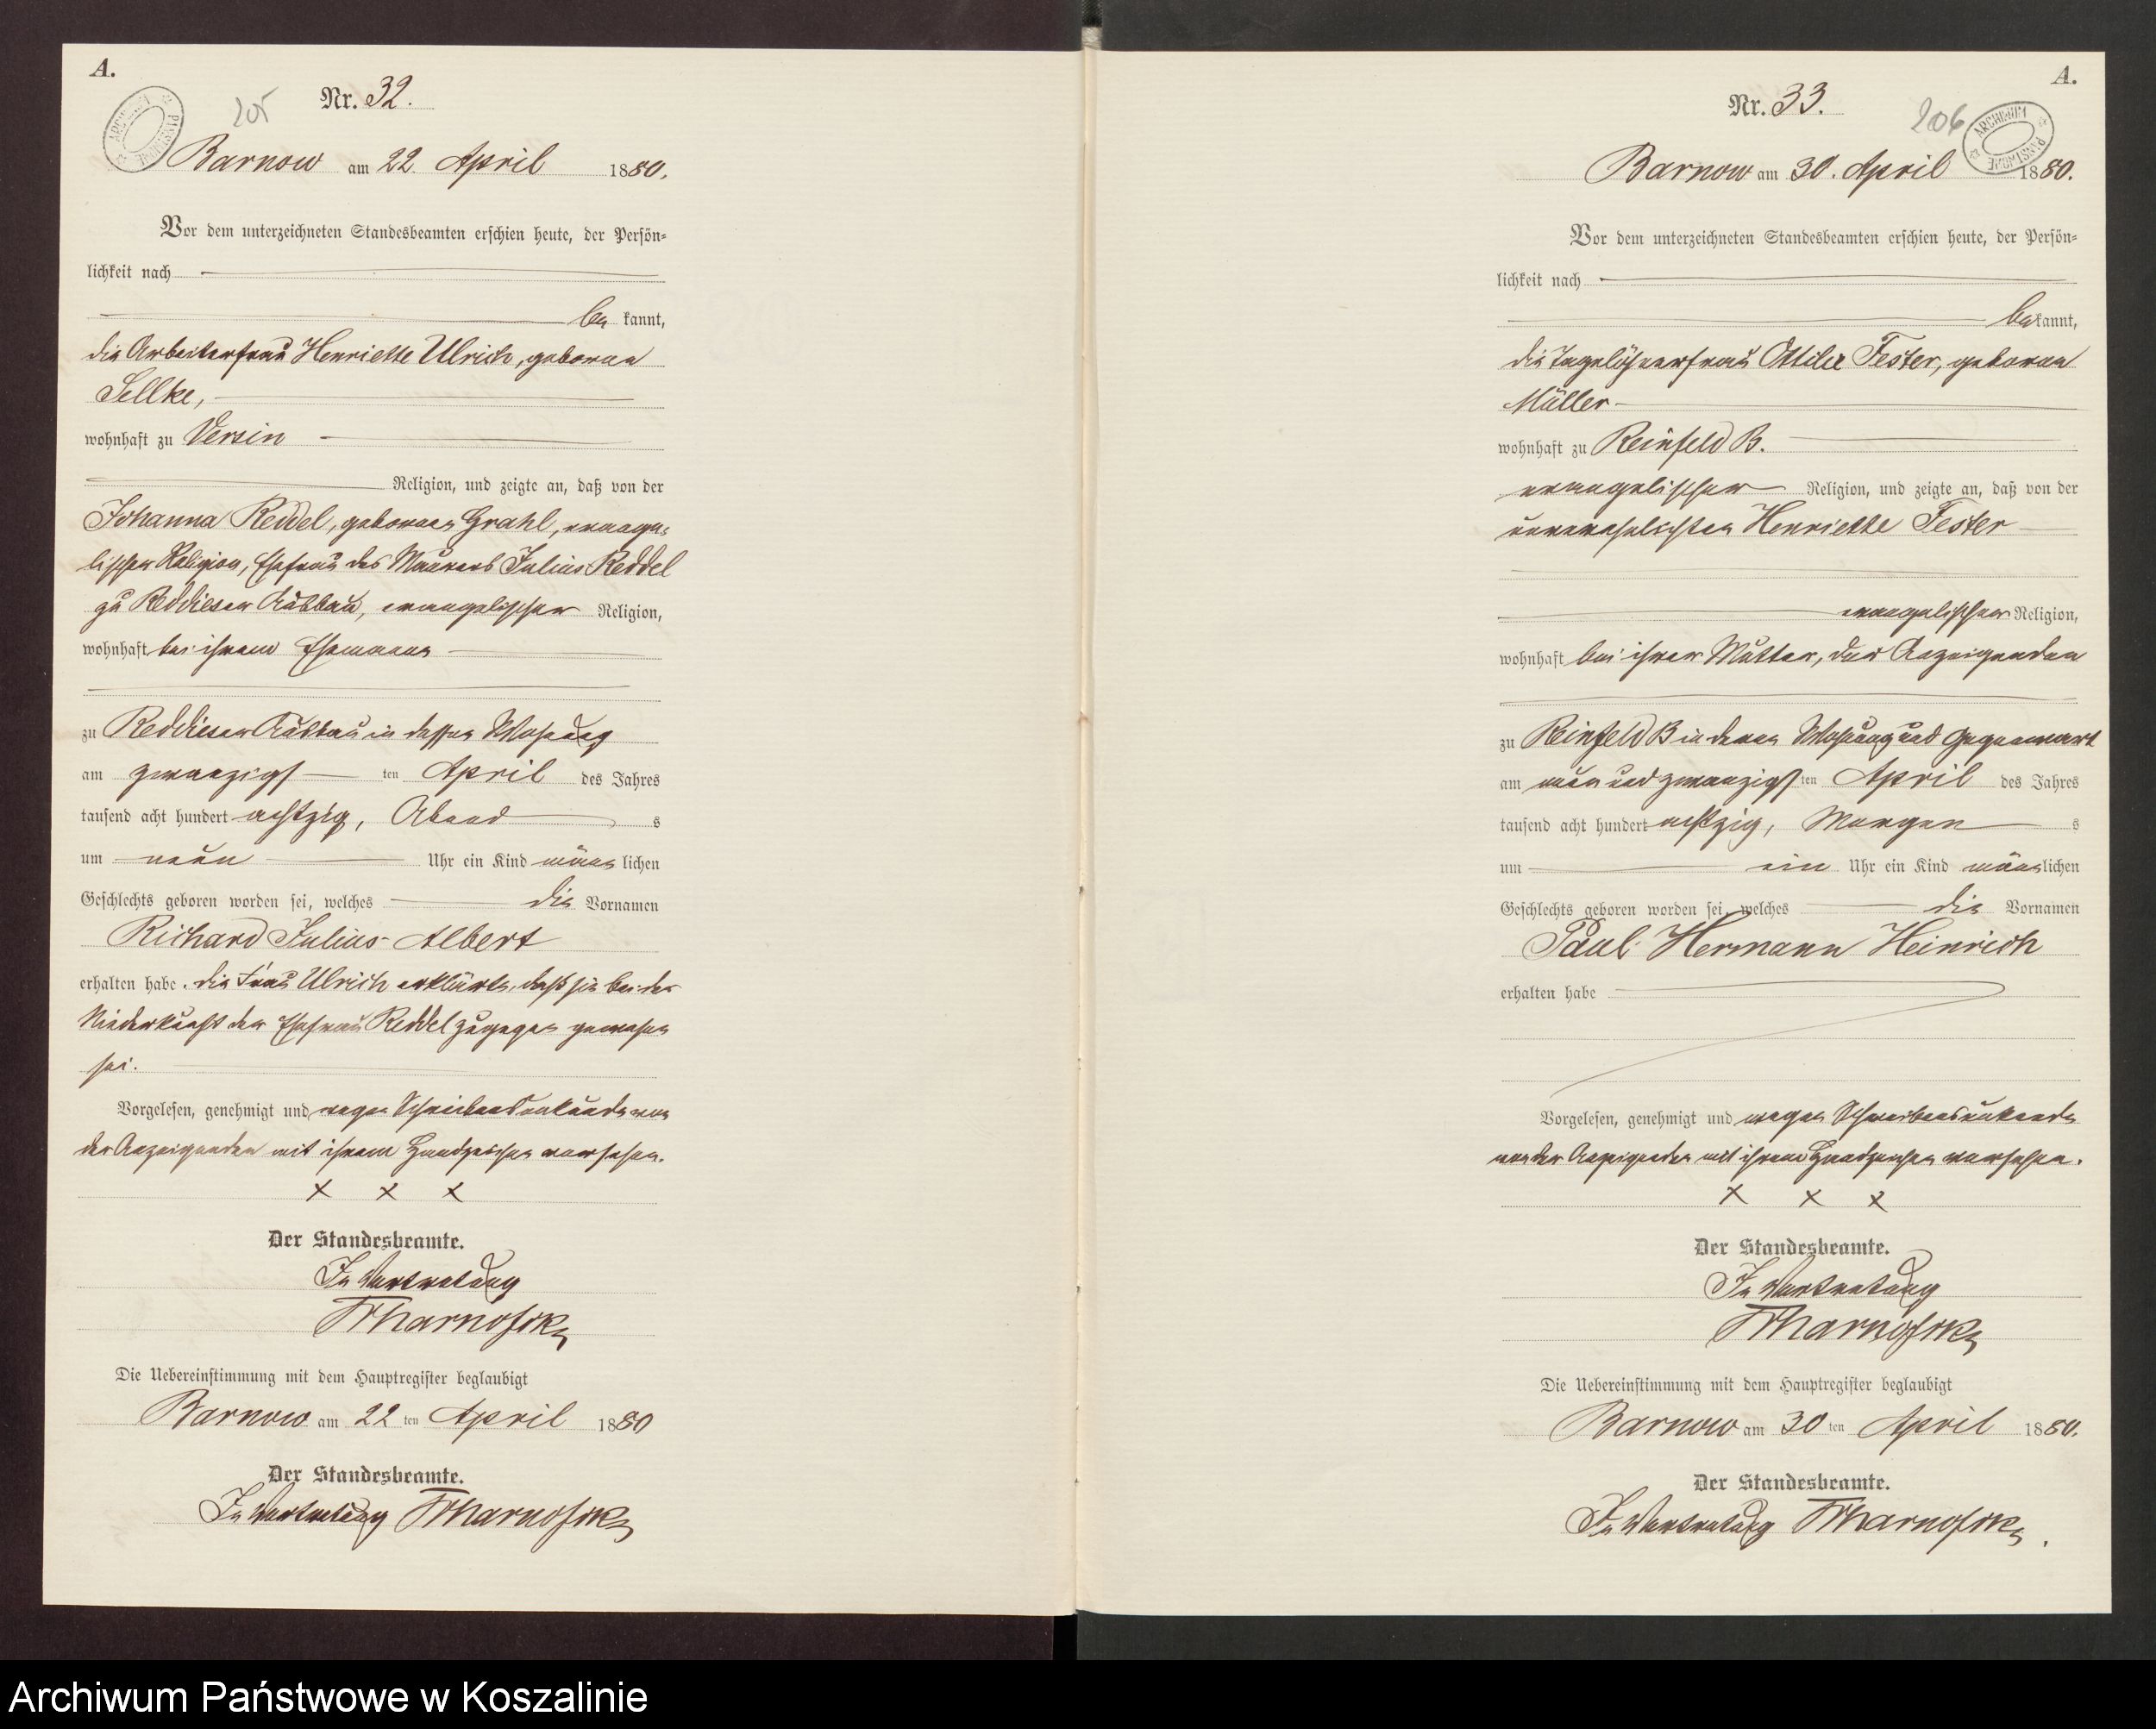 A.
205
Nr. 32.
ARCHIWUM PAŃSTWOWE
Barnow am 22. April 1880.
Vor dem unterzeichneten Standesbeamten erschien heute, der Persön-
lichkeit nach
be kannt,
die Arbeiterfrau Henriette Ulrich, geborne
Sellke,
wohnhaft zu Versin
Religion, und zeigte an, daß von der
Johanna Reddel, geborenen Grahl, evange-
lischer Religion, Ehefrau des Maurers Julius Reddel
zu Reddieser Ausbau, evangelischer Religion,
wohnhaft bei ihrem Ehemanne
zu Reddieser Ausbau in dessen Wohnung
am zwanzigs ten April des Jahres
tausend acht hundert achtzig, Abend s
um neun Uhr ein Kind männ lichen
Geschlechts geboren worden sei, welches die Vornamen
Richard Julius Albert
erhalten habe. die Frau Ulrich erklärte, daß sie bei der
Niederkunft der Ehefrau Reddel zugegen gewesen
sei.
Vorgelesen, genehmigt und wegen Schreibensunkunde von
der Anzeigenden mit ihrem Handzeichen versehen.
x x x
Der Standesbeamte.
In Vertretung
Die Uebereinstimmung mit dem Hauptregister beglaubigt
Barnow am 22 ten April 1880
Der Standesbeamte.
In Vertretung
A.
Nr. 33.
206
ARCHIWUM PAŃSTWOWE
Barnow am 30. April 1880.
Vor dem unterzeichneten Standesbeamten erschien heute, der Persön-
lichkeit nach
be kannt,
die Tagelöhnerfrau Ottilie Fester, geborne
Müller
wohnhaft zu Reinfeld B.
evangelischer Religion, und zeigte an, daß von der
unverehelichten Henriette Fester
evangelischer Religion,
wohnhaft bei ihrer Mutter, der Anzeigenden
zu Reinfeld B in deren Wohnung und Gegenwart
am neun und zwanzigs ten April des Jahres
tausend acht hundert achtzig, Morgen s
um ein Uhr ein Kind männ lichen
Geschlechts geboren worden sei, welches die Vornamen
Paul Hermann Heinrich
erhalten habe
Vorgelesen, genehmigt und wegen Schreibensunkunde
von der Anzeigenden mit ihrem Handzeichen versehen.
x x x
Der Standesbeamte.
In Vertretung
Die Uebereinstimmung mit dem Hauptregister beglaubigt
Barnow am 30 ten April 1880.
Der Standesbeamte.
In Vertretung
Archiwum Państwowe w Koszalinie